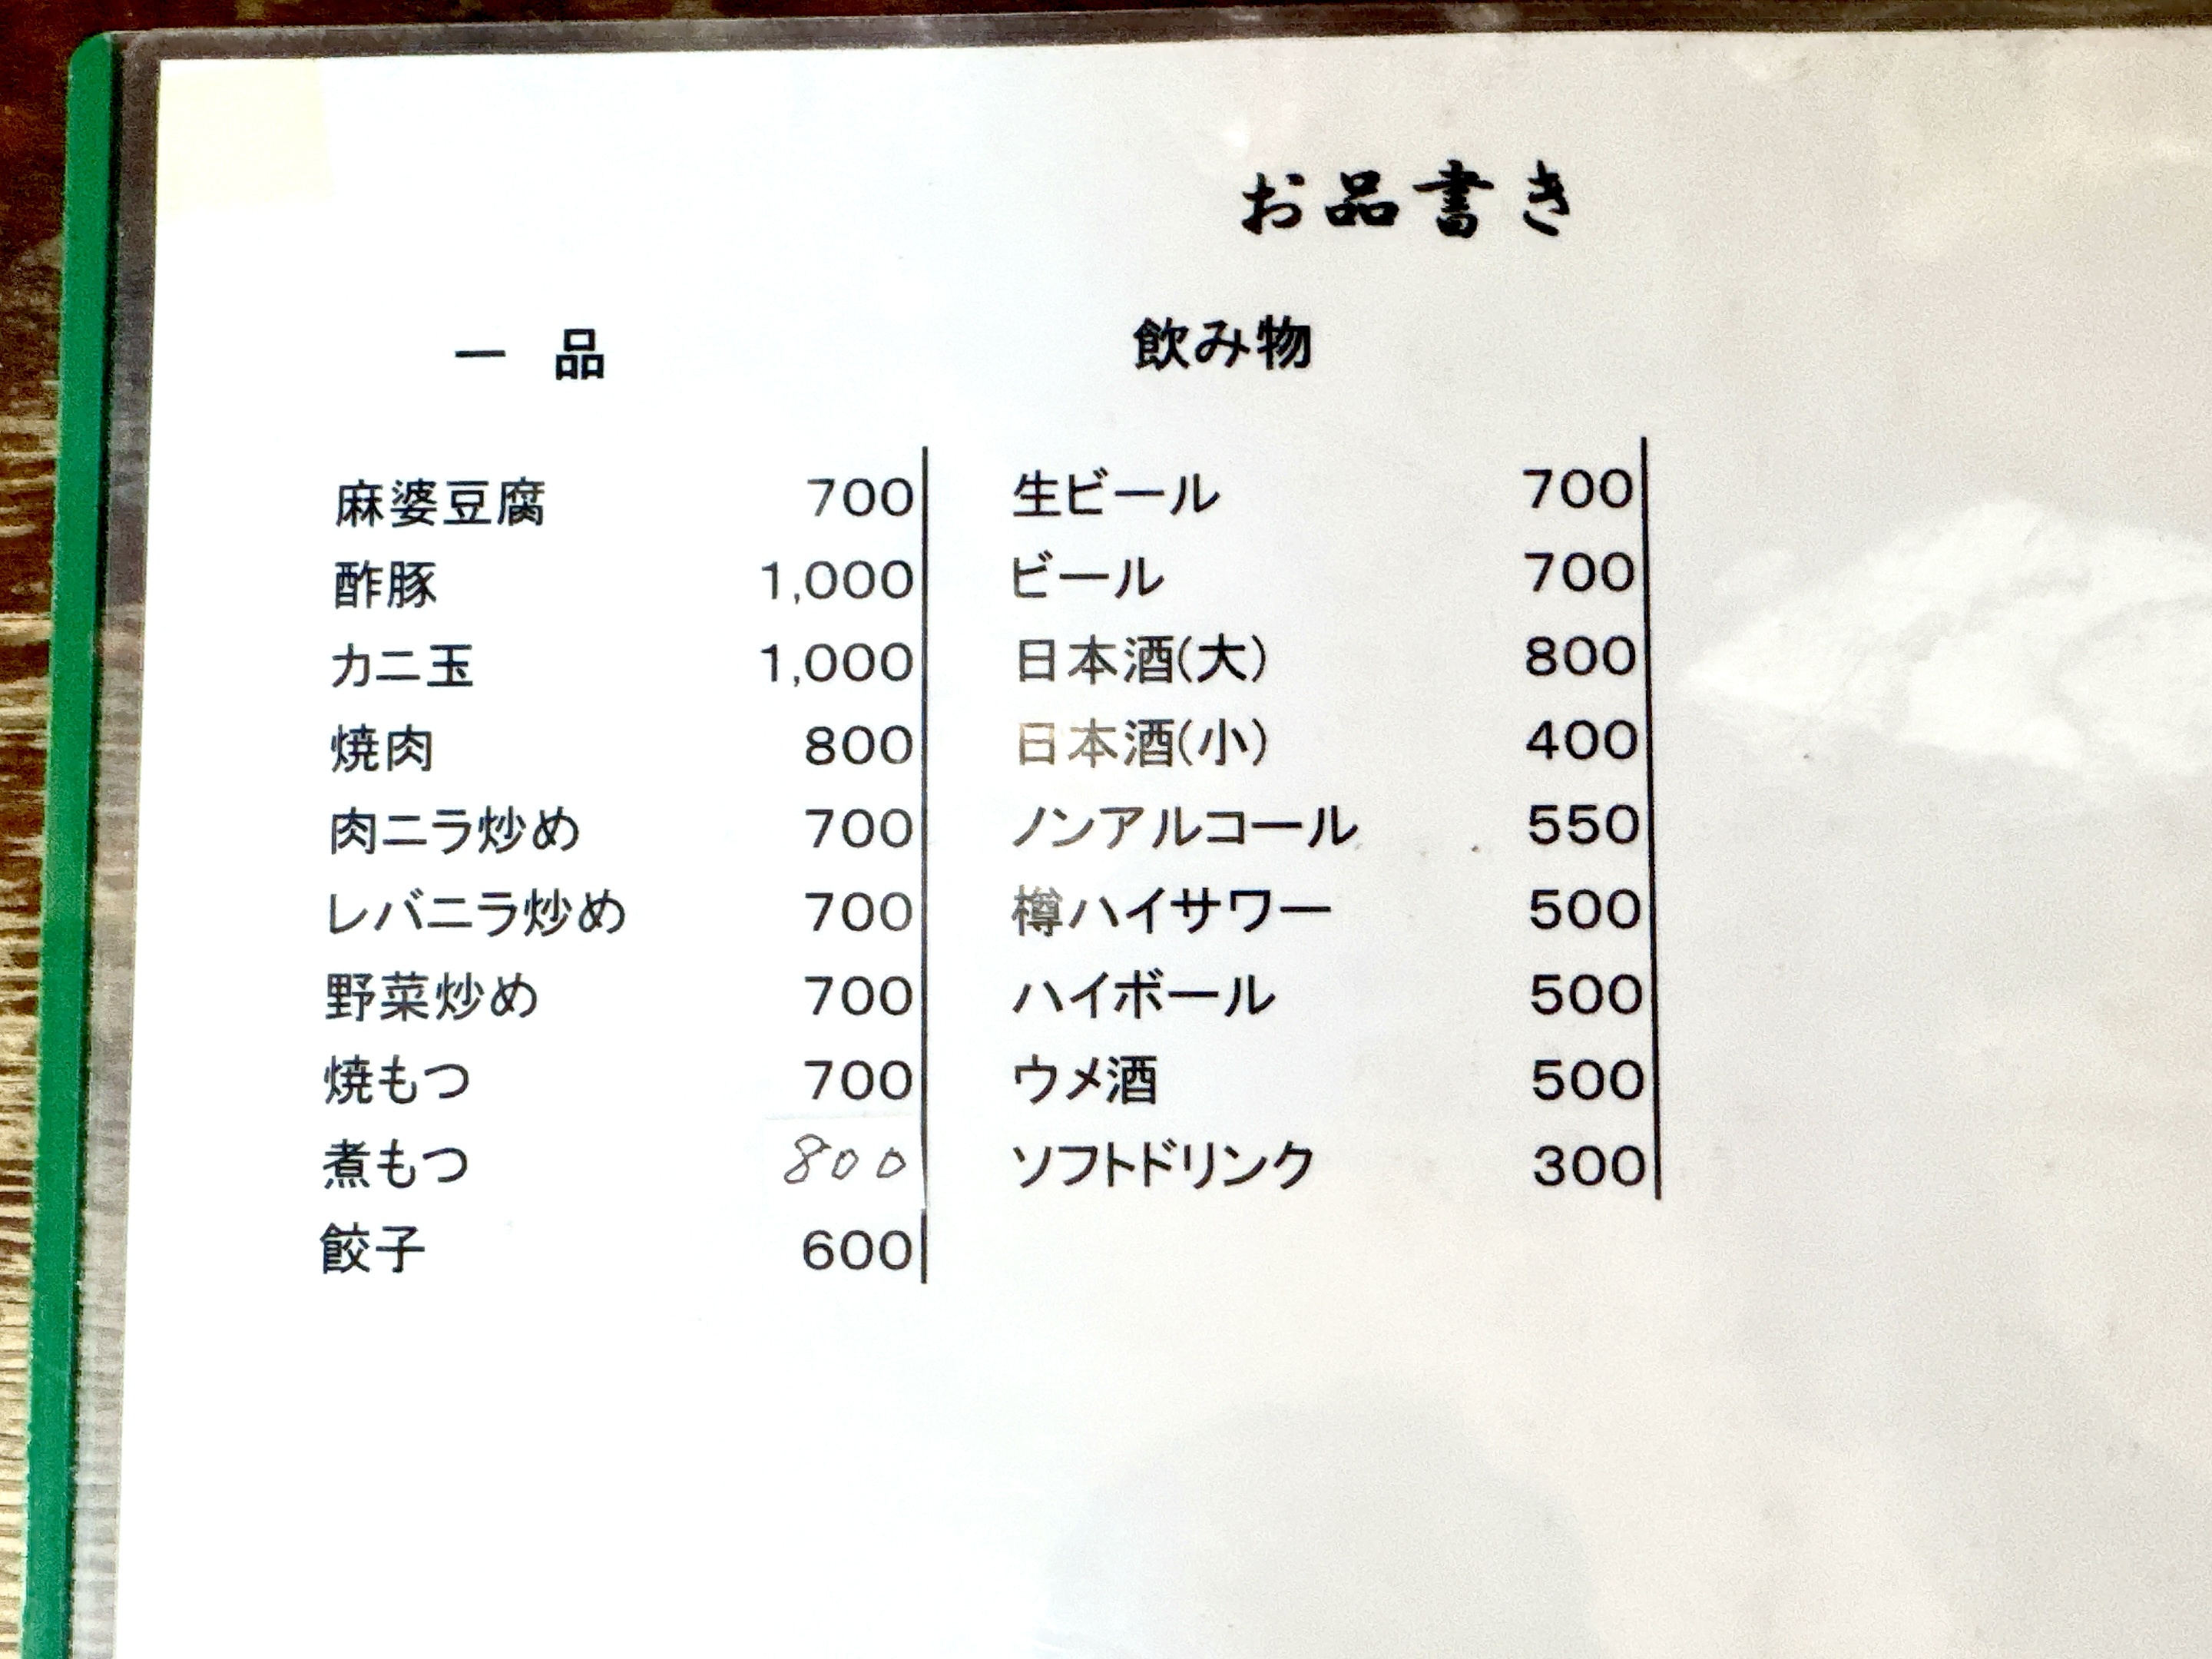 お品書き
一 品
麻婆豆腐 700
酢豚 1,000
カニ玉 1,000
焼肉 800
肉ニラ炒め 700
レバニラ炒め 700
野菜炒め 700
焼もつ 700
煮もつ 800
餃子 600
飲み物
生ビール 700
ビール 700
日本酒(大) 800
日本酒(小) 400
ノンアルコール 550
樽ハイサワー 500
ハイボール 500
ウメ酒 500
ソフトドリンク 300